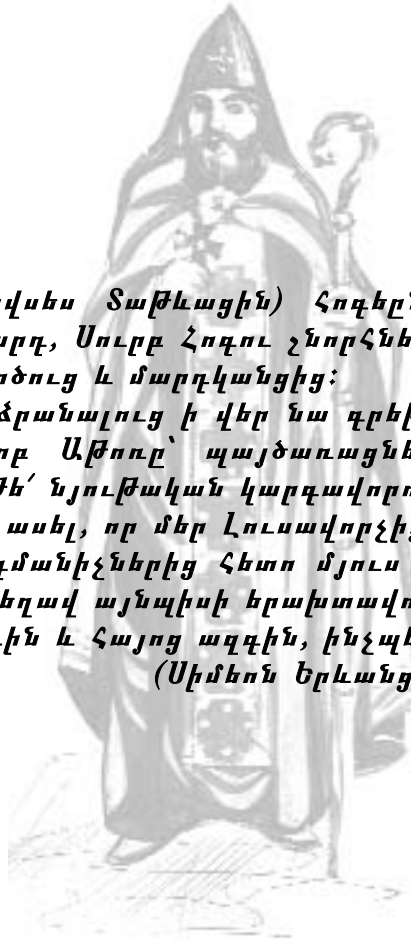 վսես Տաթևացին) Հոգերն
արդ, Սուրբ Հոգու շնորհնե
ործուց և մարդկանցից:
ձրանալուց ի վեր նա գրել
րբ Աթոռը՝ պայծառացնե
թե՛ նյութական կարգավորո
ասել, որ մեր Լուսավորչի
գմանիչներից հետո մյուս
եղավ այնպիսի երախտավո
ին և Հայոց ազգին, ինչպե
(Սիմեոն Երևանց